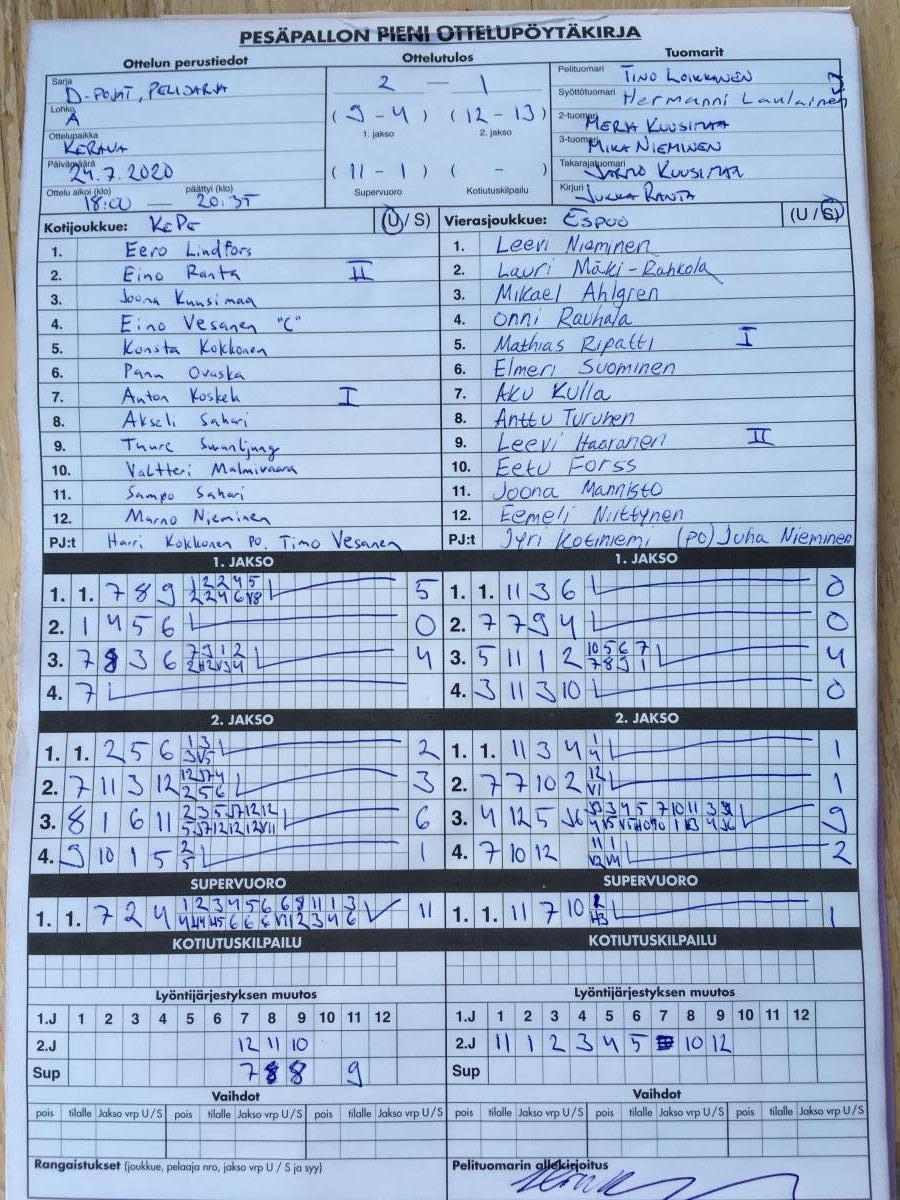 PESÄPALLON PIENI OTTELUPÖYTÄKIRJA
Ottelun perustiedot
Ottelutulos
Tuomarit
Sarja D-POJAT, PELISARJA
Lohko A
Ottelupaikka KERAVA
Päivämäärä 24.7.2020
Ottelu alkoi (klo) päättyi (klo)
18:00 — 20:35
2 — 1
( 9 - 4 ) ( 12 - 13 )
1. jakso 2. jakso
( 11 - 1 ) ( - )
Supervuoro Kotiutuskilpailu
Pelituomari TINO LOIKKANEN
Syöttötuomari Hermanni Laulainen
2-tuomari MERJA KUUSIMAA
3-tuomari MIKA NIEMINEN
Takarajatuomari JARMO KUUSIMAA
Kirjuri JUKKA RANTA
Kotijoukkue: KePe (U / S)
1. Eero Lindfors
2. Eino Ranta II
3. Joona Kuusimaa
4. Eino Vesanen "C"
5. Konsta Kokkonen
6. Panu Ovaska
7. Anton Koskela I
8. Akseli Sahari
9. Thure Swanljung
10. Valtteri Malmivaara
11. Sampo Sahari
12. Marno Nieminen
PJ:t Harri Kokkonen PO. Timo Vesanen
Vierasjoukkue: ESPOO (U / S)
1. Leevi Nieminen
2. Lauri Mäki-Rahkola
3. Mikael Ahlgren
4. Onni Rauhala
5. Mathias Ripatti I
6. Elmeri Suominen
7. Aku Kulla
8. Anttu Turunen
9. Leevi Haaranen II
10. Eetu Forss
11. Joona Mannisto
12. Eemeli Niittynen
PJ:t Jyri Kotiniemi (PO) Juha Nieminen
1. JAKSO
1. 1. 7 8 9 5
2. 1 4 5 6 0
3. 7 8 3 6 4
4. 7
2. JAKSO
1. 1. 2 5 6 2
2. 7 11 3 12 3
3. 8 1 6 11 6
4. 9 10 1 5 2 5 1
SUPERVUORO
1. 1. 7 2 4 11
KOTIUTUSKILPAILU
1. JAKSO
1. 1. 11 3 6 0
2. 7 7 9 4 0
3. 5 11 1 2 10 5 6 7 7 8 9 1 4
4. 3 11 3 10 0
2. JAKSO
1. 1. 11 3 4 1
2. 7 7 10 2 1
3. 4 12 5 9
4. 7 10 12 2
SUPERVUORO
1. 1. 11 7 10 1
KOTIUTUSKILPAILU
Lyöntijärjestyksen muutos
1.J 1 2 3 4 5 6 7 8 9 10 11 12
2.J 12 11 10
Sup 7 8 8 9
Lyöntijärjestyksen muutos
1.J 1 2 3 4 5 6 7 8 9 10 11 12
2.J 11 1 2 3 4 5 10 12
Sup
Vaihdot
pois tilalle Jakso vrp U / S pois tilalle Jakso vrp U / S pois tilalle Jakso vrp U / S
Vaihdot
pois tilalle Jakso vrp U / S pois tilalle Jakso vrp U / S pois tilalle Jakso vrp U / S
Rangaistukset (joukkue, pelaaja nro, jakso vrp U / S ja syy)
Pelituomarin allekirjoitus